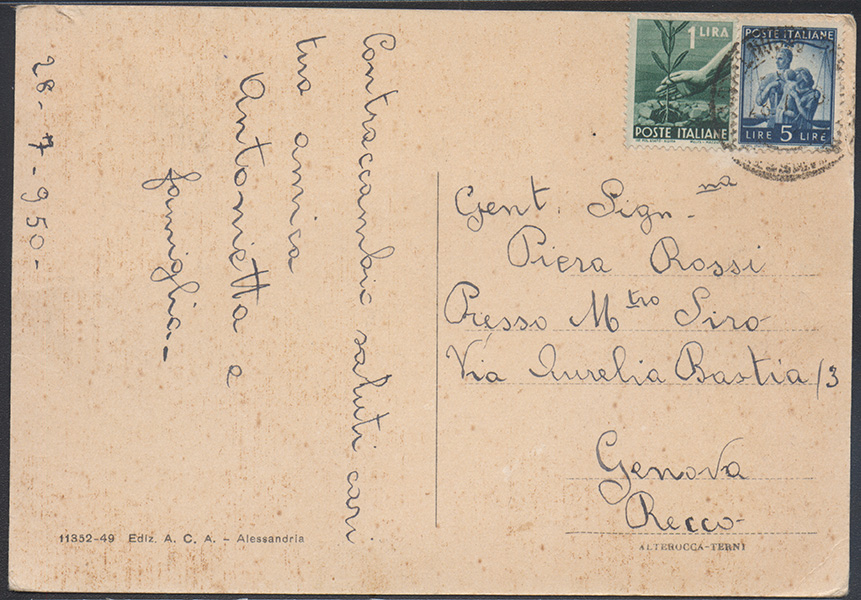 28-7-950-
Contraccambio saluti cari
tua amica
Antonietta e
famiglia-
1 LIRA
POSTE ITALIANE
POSTE ITALIANE
LIRE 5 LIRE
Gent. Sign-na
Piera Rossi
Presso Mtro Siro
Via Aurelia Bastia/3
Genova
Recco-
11352-49 Ediz. A. C. A. - Alessandria
ALTEROCCA-TERNI